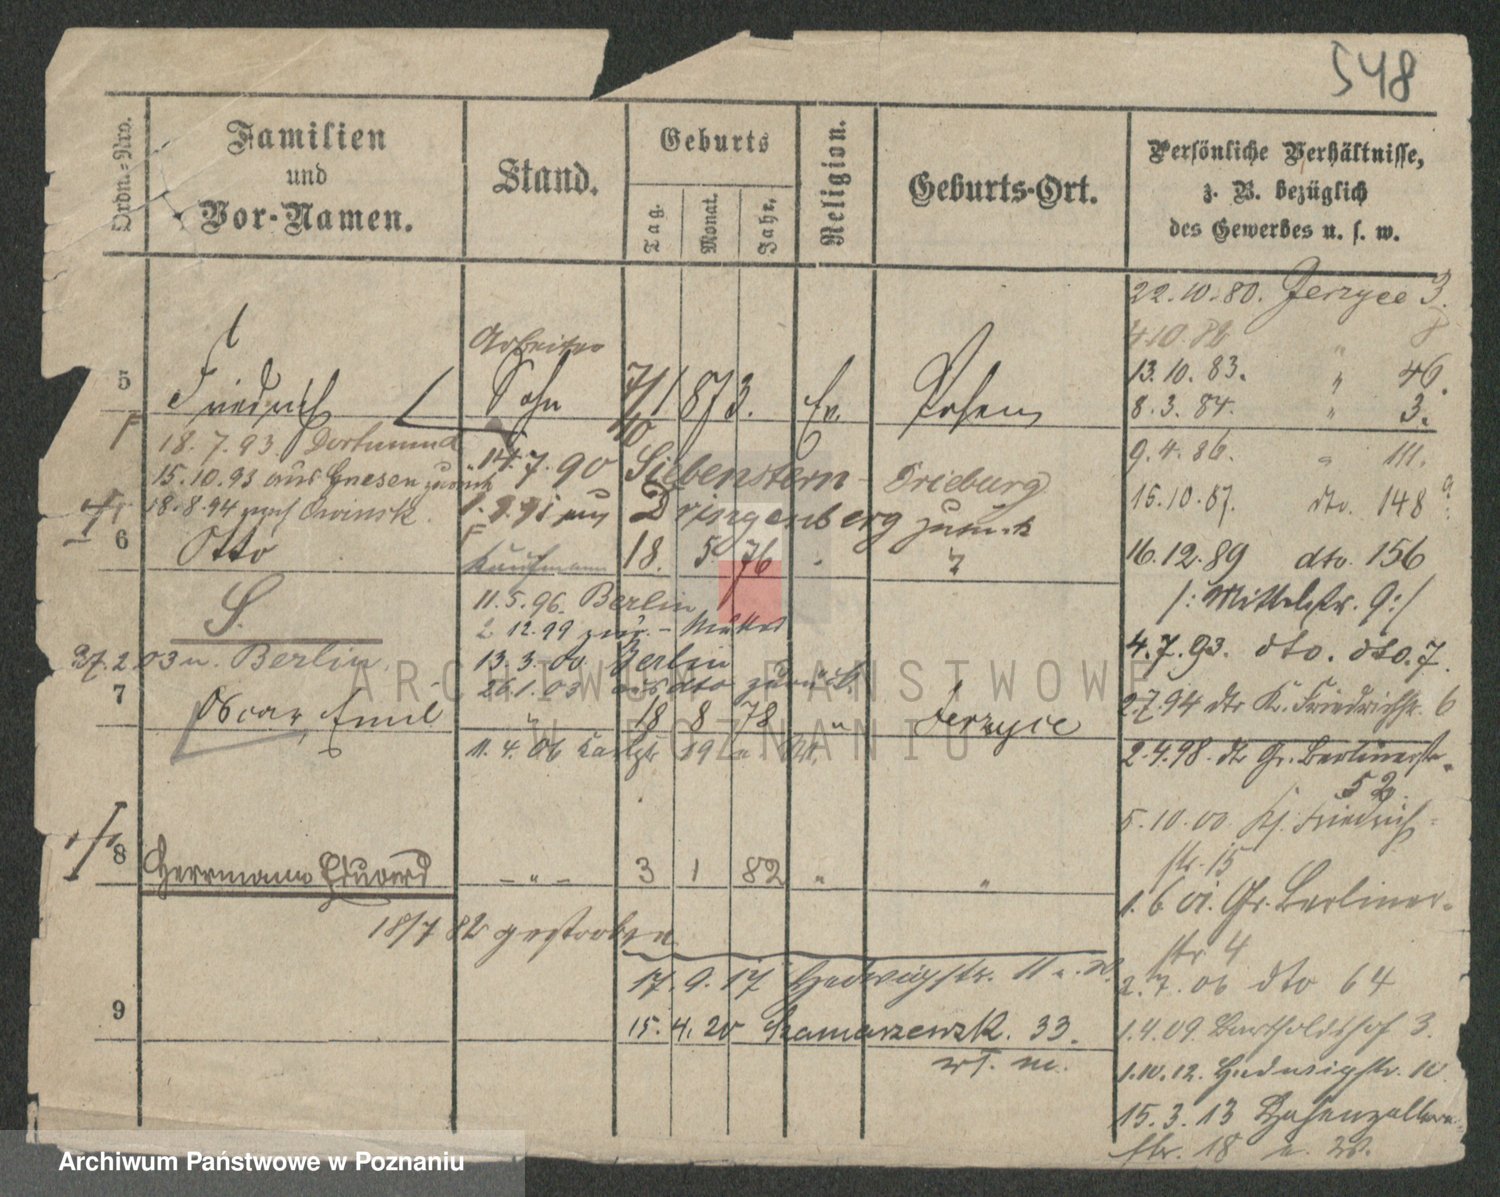 548
Ordn.-Nro.
Familien
und
Vor-Namen.
Stand.
Geburts
Tag.
Monat.
Jahr.
Religion.
Geburts-Ort.
Persönliche Verhältnisse,
z. B. bezüglich
des Gewerbes u. s. w.
22.10.80. Jerzyce 3.
4.10.82 " 8
13.10.83. " 46.
8.3.84. " 3.
9.4.86. " 111.
15.10.87. dto. 148
16.12.89 dto. 156
/: Mittelstr. 9 :/
4.7.93. dto. dto. 7.
2.7.94 dto K. Friedrichstr. 6
2.4.98. dto Gr. Berlinerstr.
52.
5.10.00 Friedrich-
str. 15
1.6.01. Gr. Berliner-
str 4
2.7.06 dto 64
1.4.09. Bartholdshof 3.
1.10.12. Hedwigstr. 10
15.3.13 Hohenzollern-
str. 18
Arbeiter
5 Friedrich Sohn 7/10 1873. Ev. Posen
18.7.93. Dortmund
15.10.93 aus Gnesen zurück
18.8.94 nach
14.7.90 Siebenstern - Frieburg
Dringenberg zurück
6 Otto Kaufmann 18. 5 76
S.
11.5.96. Berlin
2 12.99 zur. - Mutter
13.3.00 Berlin
26.1.03 aus dto zurück
03 n. Berlin
7 Oscar, Emil " 18 8 78 " Jerzyce
11.4.06
8 Herrmann Eduard - " - 3 1 82 " "
18/7 82 gestorben
17.9.17 Hedwigstr. 11
9
15.4.20 Szamarzewsk. 33.
ARCHIWUM PAŃSTWOWE
W POZNANIU
Archiwum Państwowe w Poznaniu